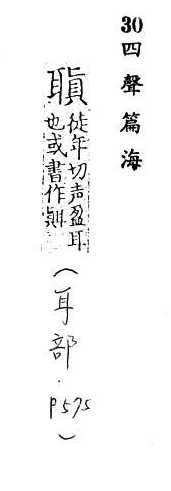 30四聲篇海
聜
徒年切声盈耳
也或書作
（耳部．P575）